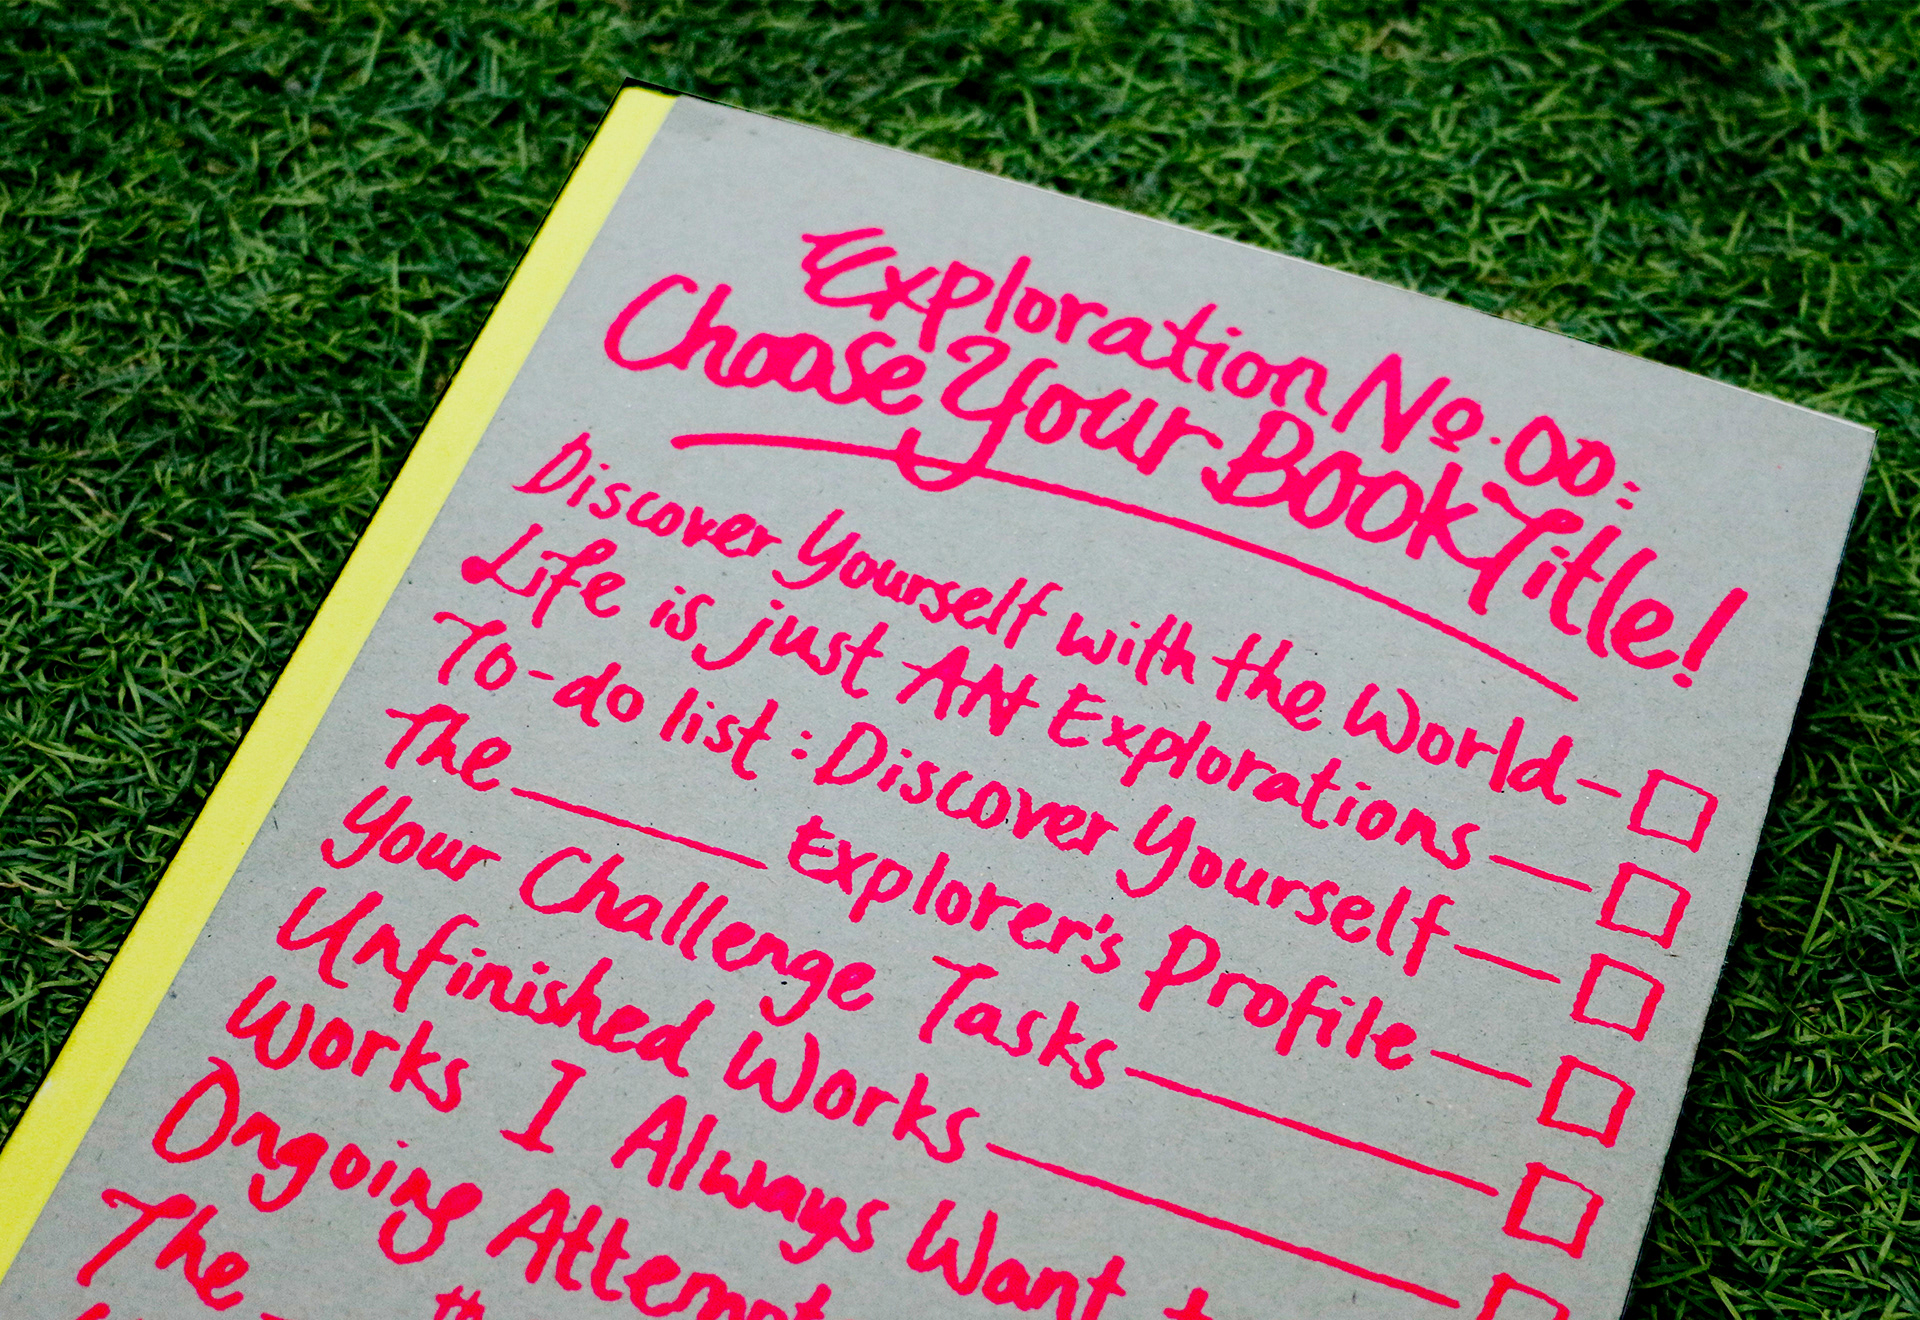 Exploration No. 00:
Choose Your Book Title!
Discover Yourself with the World
Life is just AN Explorations
To-do list: Discover Yourself
The ______ Explorer's Profile
Your Challenge Tasks
Unfinished Works
Works I Always Want
Ongoing Attempt
The